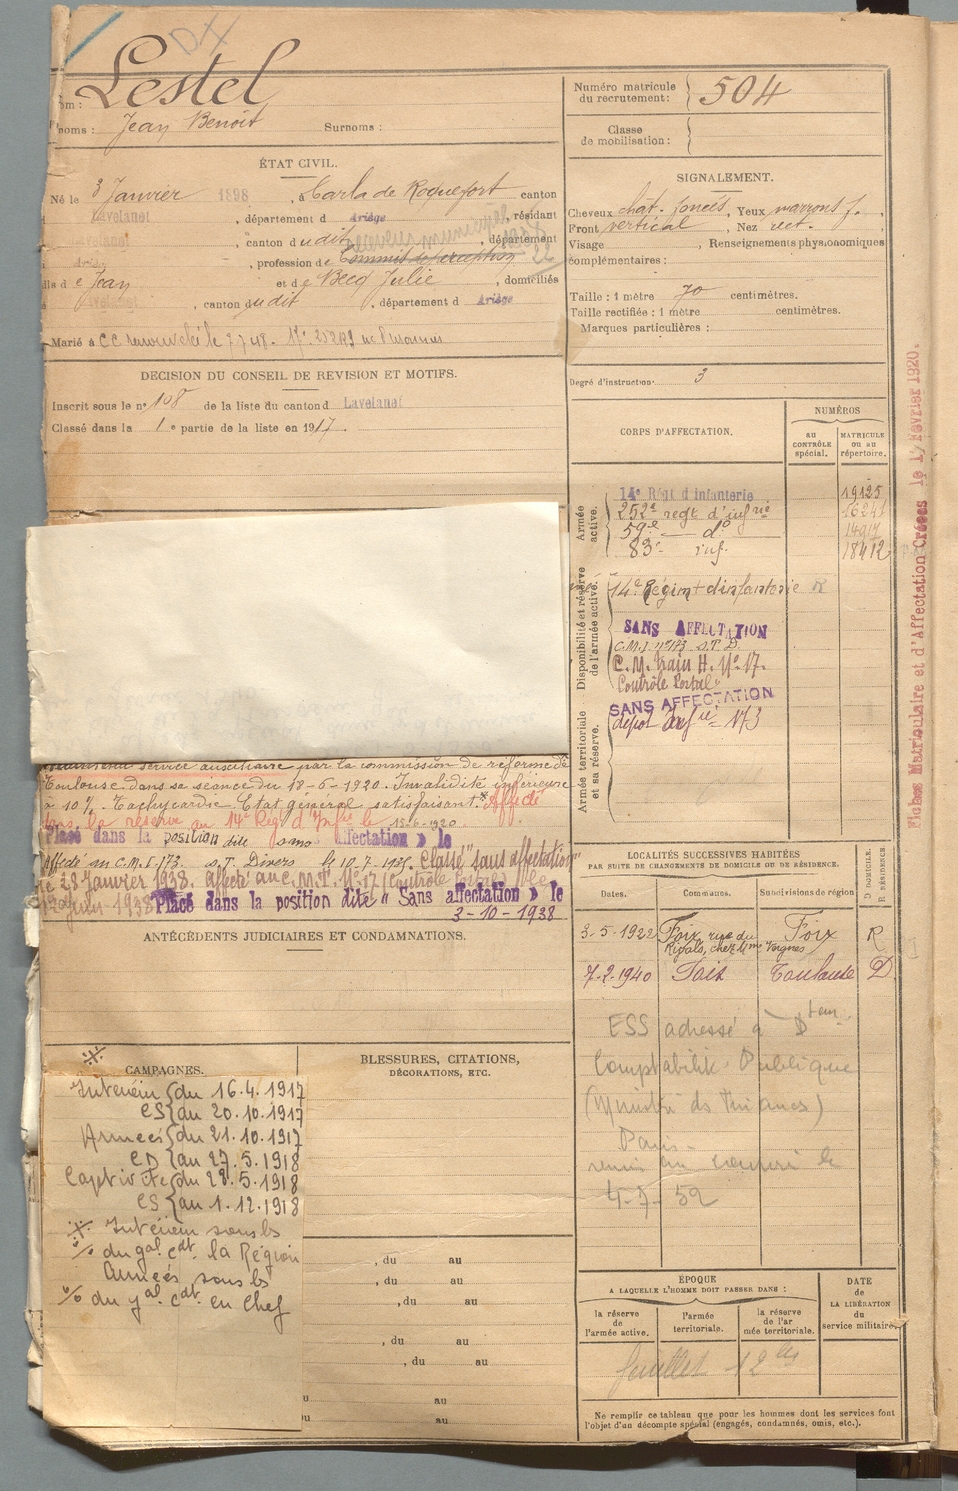 Lestel
Jean Benoit Surnoms :
Numéro matricule du recrutement : 504
Classe de mobilisation :
ÉTAT CIVIL.
Né le 3 Janvier 1898, à Carla de Roquefort canton
Lavelanet, département d Ariège, résidant
Lavelanet, canton dudit, département
, profession de Commis de perception
receveur municipal
e Jean et de Becq Julie, domiciliés
Lavelanet, canton dudit, département d Ariège
Marié à
SIGNALEMENT.
Cheveux chat. foncés, Yeux marrons f.
Front vertical, Nez rect.
Visage , Renseignements physionomiques
complémentaires :
Taille : 1 mètre 70 centimètres.
Taille rectifiée : 1 mètre centimètres.
Marques particulières :
Degré d'instruction 3
DÉCISION DU CONSEIL DE REVISION ET MOTIFS.
Inscrit sous le n° 108 de la liste du canton d Lavelanet
Classé dans la 1e partie de la liste en 1917.
CORPS D'AFFECTATION.
NUMÉROS
au CONTRÔLE spécial.
MATRICULE ou au répertoire.
Armée active.
14e Régt d'infanterie 19125
252e regt d'infrie 16241
59e — do 14917
83e inf. 18412
Disponibilité et réserve de l'armée active.
14e Régimt d'infanterie
SANS AFFECTATION
C.M.I. n° 173 S.T.D.
C.M. Train H. N° 17.
Contrôle Postal
SANS AFFECTATION
Armée territoriale et sa réserve.
dépot Infie 173
Fiches Matriculaire et d'Affectation Créées le 1r Février 1920.
service auxiliaire par la commission de réforme de
Toulouse dans sa séance du 18-6-1920. Invalidité inférieure
à 10 %. Tachycardie. Etat général satisfaisant. Affecté
dans la réserve au 14e Régt d'Infie le 15.6.1920.
Placé dans la position dite sans affectation » le
Affecté au C.M.I. 173 S.T. Divers le 10.7.1935. Classé "sans affectation"
le 28 Janvier 1938. Affecté au C.M.T. N° 17 (Contrôle Postal)
Juin 1938 Placé dans la position dite « Sans affectation » le
3-10-1938
ANTÉCÉDENTS JUDICIAIRES ET CONDAMNATIONS.
LOCALITÉS SUCCESSIVES HABITÉES
PAR SUITE DE CHANGEMENTS DE DOMICILE OU DE RÉSIDENCE.
Dates. Communes. Subdivisions de région
D DOMICILE. R RÉSIDENCE
3-5-1922 Foix, rue du Rival, chez Mme Vergnes Foix R
7-2-1940 Foix Toulouse D
ESS adressé à
Comptabilité Publique
Paris
4-7-52
CAMPAGNES.
Intérieur du 16.4.1917
CS au 20.10.1917
Armées du 21.10.1917
CD au 27.5.1918
Captivité du 28.5.1918
CS au 1.12.1918
Intérieur sous les
% du gal cdt la Région
Armées sous les
% du gal cdt en Chef
BLESSURES, CITATIONS,
DÉCORATIONS, ETC.
, du au
, du au
, du au
, du au
, du au
au
au
ÉPOQUE
A LAQUELLE L'HOMME DOIT PASSER DANS :
la réserve de l'armée active.
l'armée territoriale.
la réserve de l'armée territoriale.
DATE de LA LIBÉRATION du service militaire.
Ne remplir ce tableau que pour les hommes dont les services font
l'objet d'un décompte spécial (engagés, condamnés, omis, etc.).